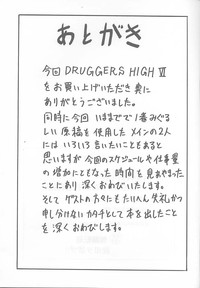 あとがき
今回 DRUGGERS HIGH Ⅵ
をお買い上げいただき 真に
ありがとうございました。
同時に今回 いままでで1番みぐる
しい原稿を使用した メインの2人
には いろいろ言いたいこともあると
思いますが 今回のスケジュールや仕事量
の増加にともなった 時間を見あやまった
ことにあり 深くおわびいたします。
そして ゲストの方々にも たいへん失礼しかつ
申し分けない カタチとして本を出したこと
を深くおわびします。